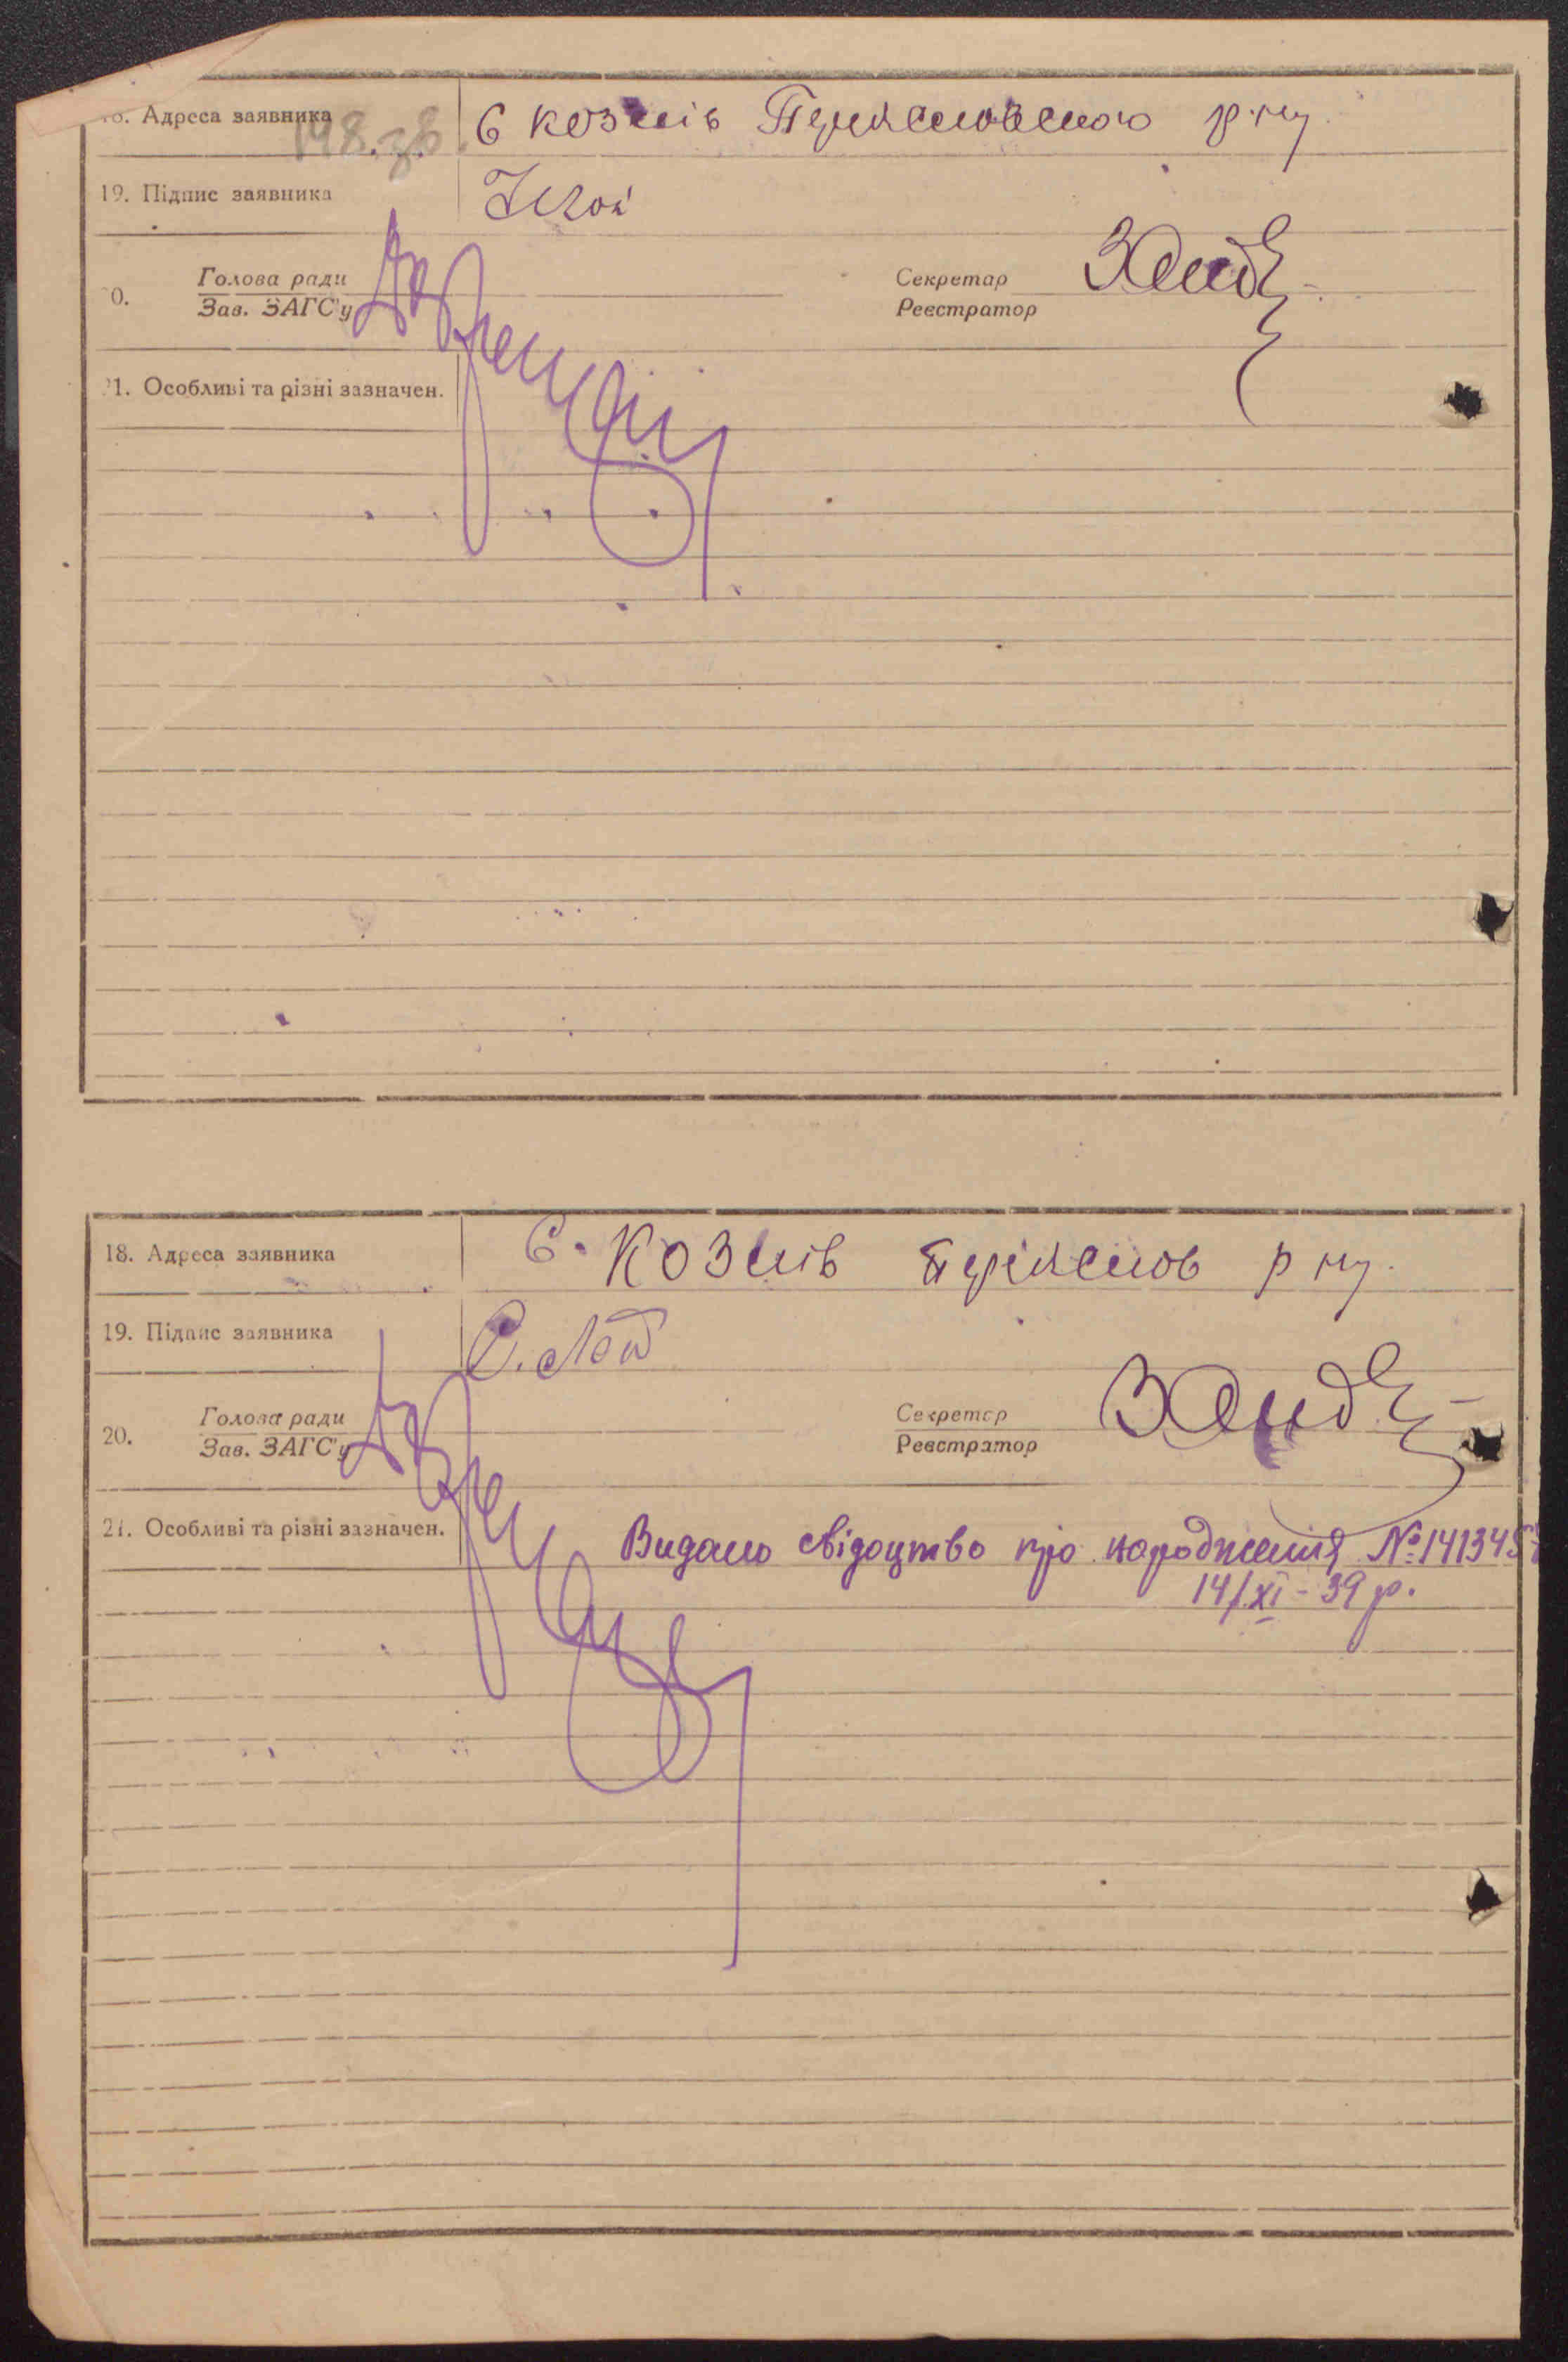 18. Адреса заявника с козлів Переяславського р-ну
148.зв.
19. Підпис заявника
Голова ради
0. Зав. ЗАГС'у
Секретар
Реєстратор
21. Особливі та різні зазначен.
18. Адреса заявника с. Козлів Переяслов р ну.
19. Підпис заявника
Голова ради
20. Зав. ЗАГС'у
Секретар
Реєстратор
21. Особливі та різні зазначен.
Видано свідоцтво про народження № 141345
14/XI - 39 р.